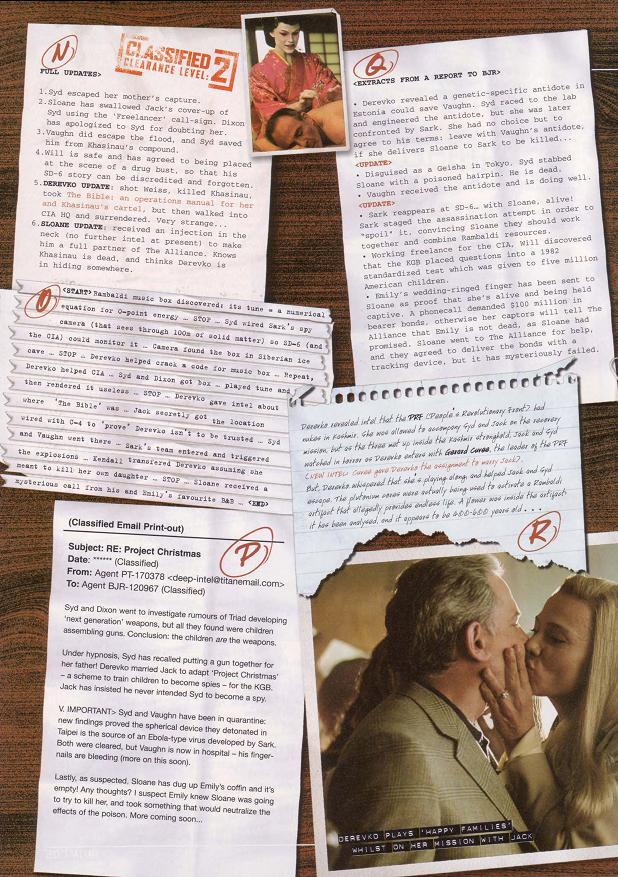 N
FULL UPDATES>
CLASSIFIED
CLEARANCE LEVEL: 2
1.Syd escaped her mother's capture.
2.Sloane has swallowed Jack's cover-up of
Syd using the 'Freelancer' call-sign. Dixon
has apologized to Syd for doubting her.
3.Vaughn did escape the flood, and Syd saved
him from Khasinau's compound.
4.Will is safe and has agreed to being placed
at the scene of a drug bust, so that his
SD-6 story can be discredited and forgotten.
5.DEREVKO UPDATE: shot Weiss, killed Khasinau,
took The Bible: an operations manual for her
and Khasinau's cartel, but then walked into
CIA HQ and surrendered. Very strange...
6.SLOANE UPDATE: received an injection in the
neck (no further intel at present) to make
him a full partner of The Alliance. Knows
Khasinau is dead, and thinks Derevko is
in hiding somewhere.
O
<START> Rambaldi music box discovered: its tune = a numerical
equation for 0-point energy ... STOP ... Syd wired Sark's spy
camera (that sees through 100m of solid matter) so SD-6 (and
the CIA) could monitor it ... Camera found the box in Siberian ice
cave ... STOP ... Derevko helped crack a code for music box ... Repeat,
Derevko helped CIA ... Syd and Dixon got box ... played tune and
then rendered it useless ... STOP ... Derevko gave intel about
where 'The Bible' was ... Jack secretly got the location
wired with C-4 to 'prove' Derevko isn't to be trusted ... Syd
and Vaughn went there ... Sark's team entered and triggered
the explosions ... Kendall transfered Derevko assuming she
meant to kill her own daughter ... STOP ... Sloane received a
mysterious call from his and Emily's favourite B&B ... <END>
P
(Classified Email Print-out)
Subject: RE: Project Christmas
Date: ****** (Classified)
From: Agent PT-170378 <deep-intel@titanemail.com>
To: Agent BJR-120967 (Classified)
Syd and Dixon went to investigate rumours of Triad developing
'next generation' weapons, but all they found were children
assembling guns. Conclusion: the children are the weapons.
Under hypnosis, Syd has recalled putting a gun together for
her father! Derevko married Jack to adapt 'Project Christmas'
– a scheme to train children to become spies – for the KGB.
Jack has insisted he never intended Syd to become a spy.
V. IMPORTANT> Syd and Vaughn have been in quarantine:
new findings proved the spherical device they detonated in
Taipei is the source of an Ebola-type virus developed by Sark.
Both were cleared, but Vaughn is now in hospital – his finger-
nails are bleeding (more on this soon).
Lastly, as suspected, Sloane has dug up Emily's coffin and it's
empty! Any thoughts? I suspect Emily knew Sloane was going
to try to kill her, and took something that would neutralize the
effects of the poison. More coming soon...
Q
<EXTRACTS FROM A REPORT TO BJR>
• Derevko revealed a genetic-specific antidote in
Estonia could save Vaughn. Syd raced to the lab
and engineered the antidote, but she was later
confronted by Sark. She had no choice but to
agree to his terms: leave with Vaughn's antidote,
if she delivers Sloane to Sark to be killed...
<UPDATE>
• Disguised as a Geisha in Tokyo, Syd stabbed
Sloane with a poisoned hairpin. He is dead.
• Vaughn received the antidote and is doing well.
<UPDATE>
• Sark reappears at SD-6... with Sloane, alive!
Sark staged the assassination attempt in order to
"spoil" it, convincing Sloane they should work
together and combine Rambaldi resources.
• Working freelance for the CIA, Will discovered
that the KGB placed questions into a 1982
standardized test which was given to five million
American children.
• Emily's wedding-ringed finger has been sent to
Sloane as proof that she's alive and being held
captive. A phonecall demanded $100 million in
bearer bonds, otherwise her captors will tell The
Alliance that Emily is not dead, as Sloane had
promised. Sloane went to The Alliance for help,
and they agreed to deliver the bonds with a
tracking device, but it has mysteriously failed.
Derevko revealed intel that the PRF (People's Revolutionary Front) had
nukes in Kashmir. She was allowed to accompany Syd and Jack on the recovery
mission, but as the three met up inside the Kashmir stronghold, Jack and Syd
watched in horror as Derevko enters with Gerard Cuvee, the leader of the PRF
(VEN INTEL: Cuvee gave Derevko the assignment to marry Jack)
But, Derevko whispered that she's playing along, and helped Jack and Syd
escape. The plutonium cores were actually being used to activate a Rambaldi
artifact that allegedly provides endless life. A flower was inside the artifact:
it has been analysed, and it appears to be 400-600 years old . . .
R
DEREVKO PLAYS 'HAPPY FAMILIES'
WHILST ON HER MISSION WITH JACK